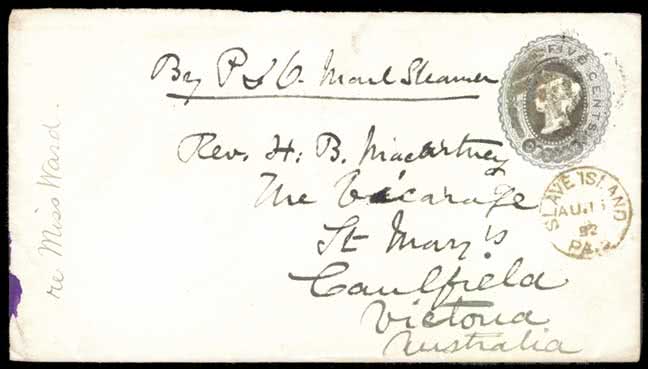 By P & O. Mail Steamer
FIVE CENTS
Rev. H. B. Macartney
The Vicarage
St Mary's
Caulfield
Victoria
Australia
SLAVE ISLAND
AU
92
PA
re Miss Ward.